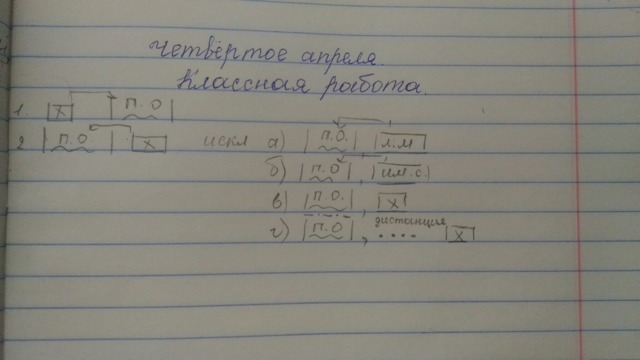 Четвёртое апреля.
Классная работа.
1. |х| |п.о|
2 |п.о| |х| искл а) |п.о.| |л.м|
б) |п.о|, |им.с.|
в) |п.о.|, |х|
дистанция
г) |п.о|, .... |х|